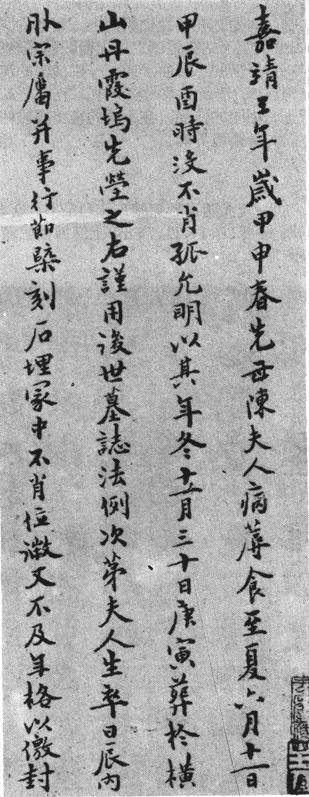 嘉靖三年歲甲申春先母陳夫人病食至夏六月十一日
甲辰酉時没不肖孤允明以其年冬十一月三十日庚寅葬於橫
山丹霞塢先塋之右謹用後世墓誌法例次第夫人生卒日辰內
外宗屬并事行節槩刻石埋冢中不肖位微又不及年格以徼封